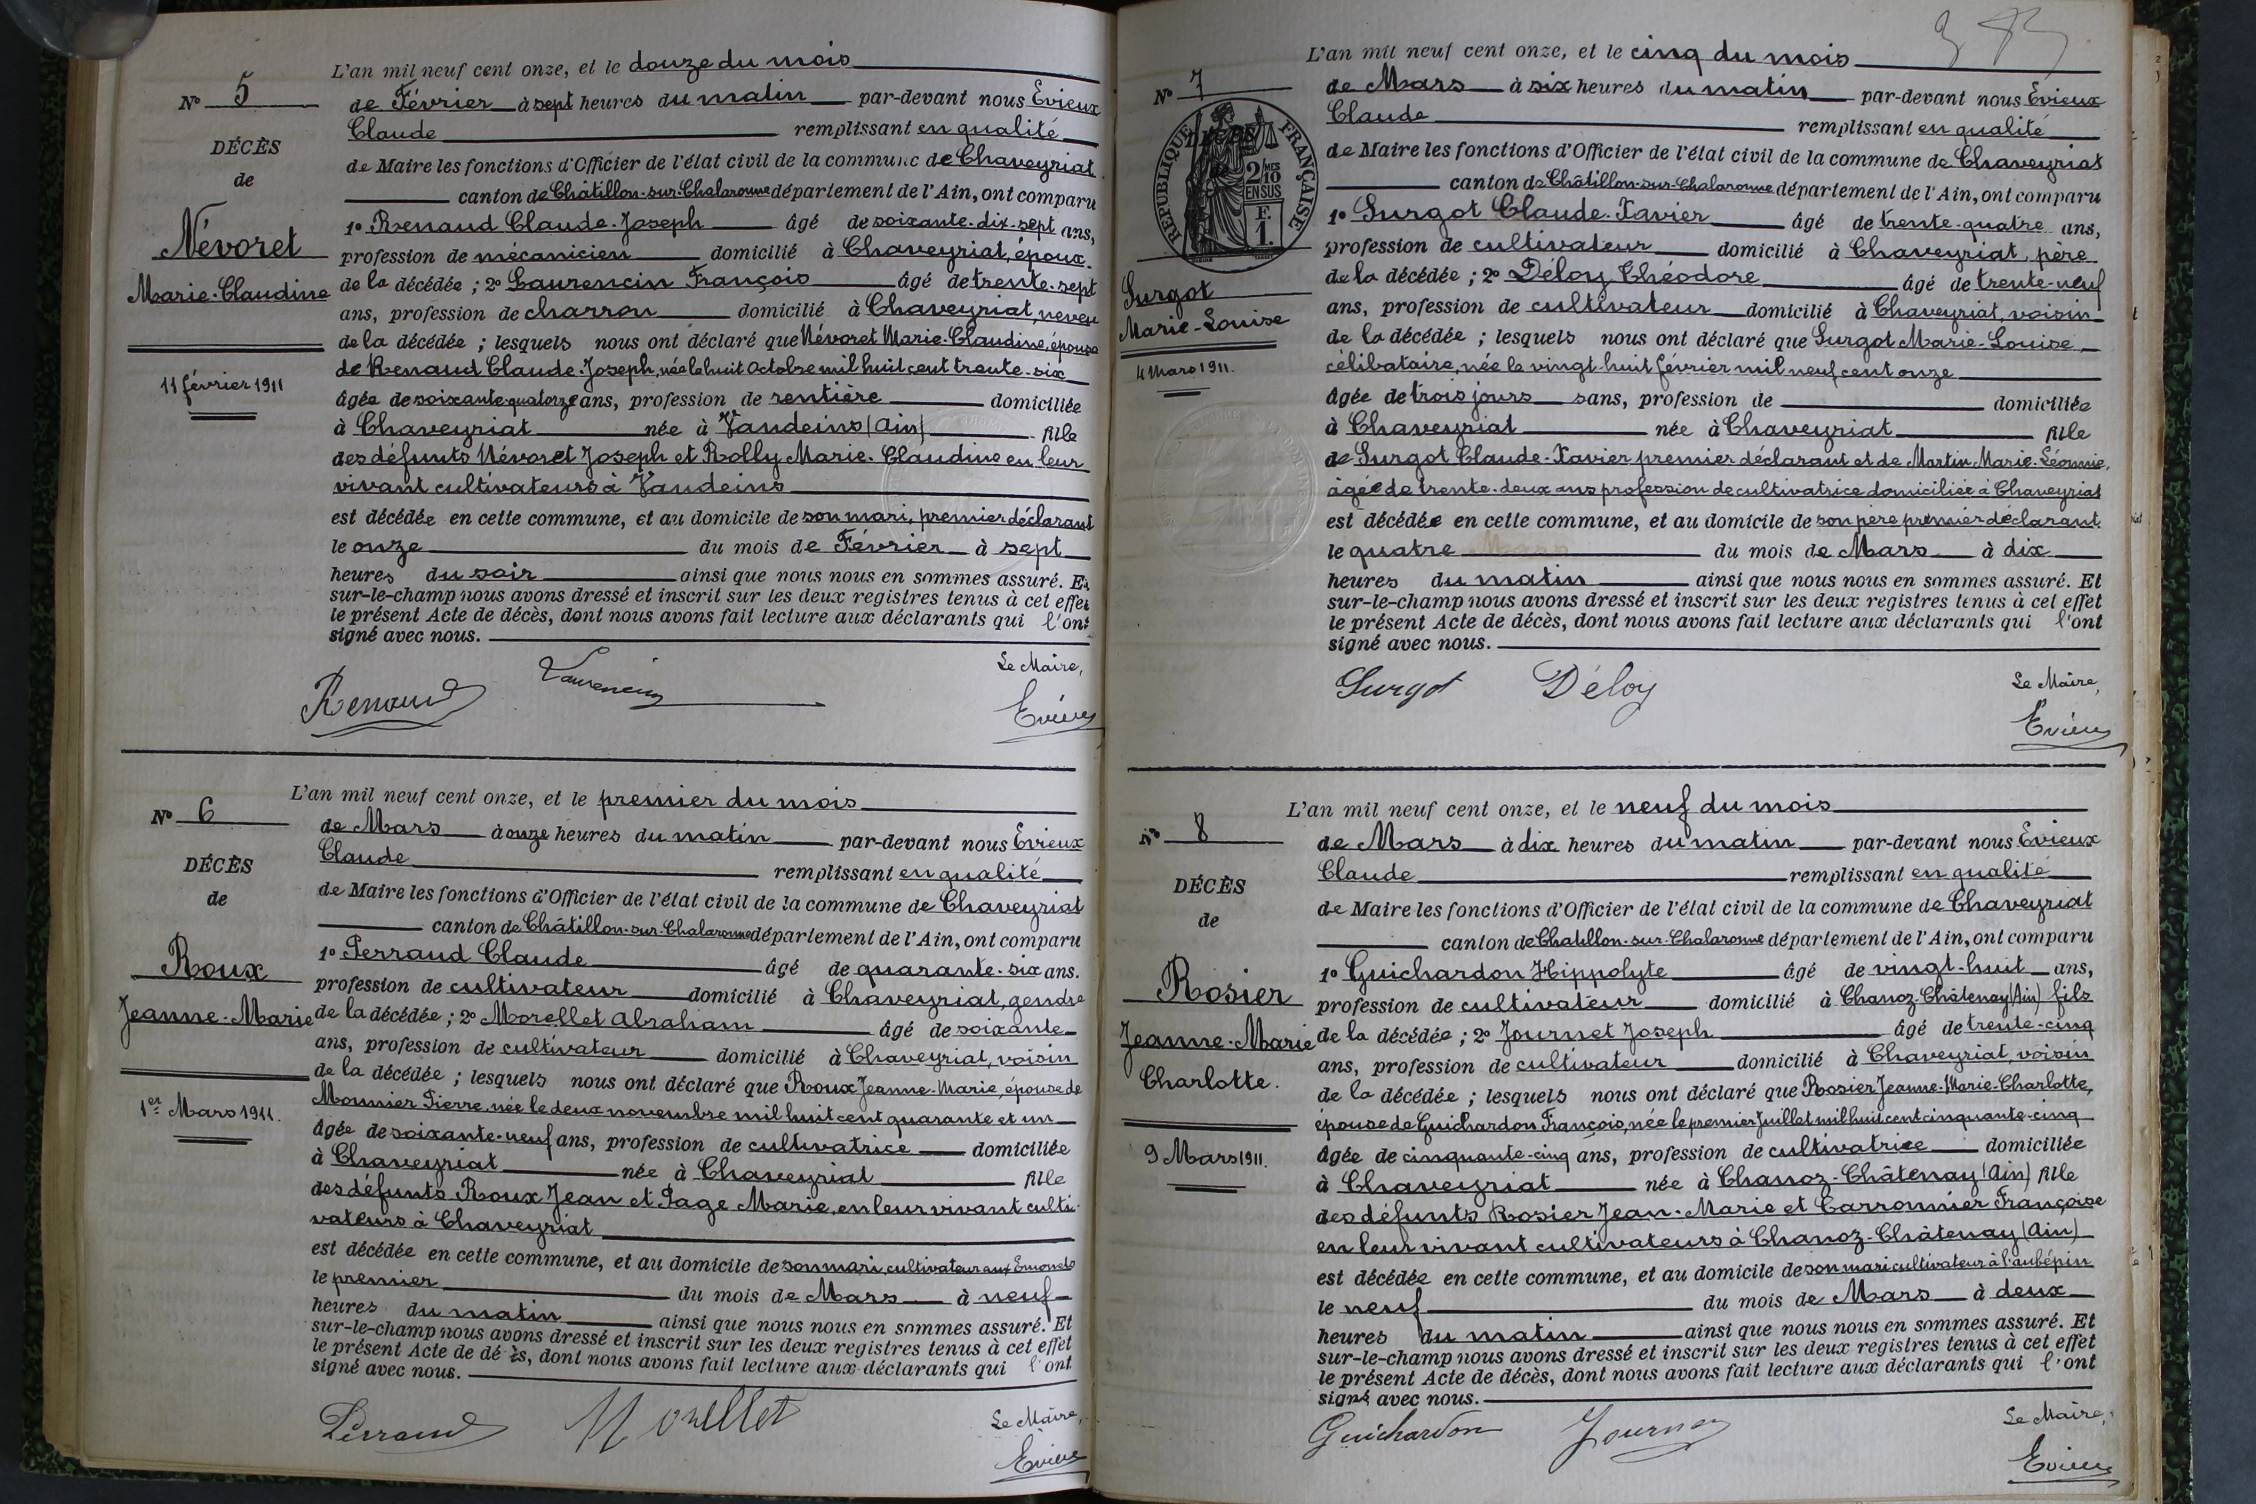 L'an mil neuf cent onze, et le douze du mois
N° 5
de Février à sept heures du matin par-devant nous Evieux
Claude remplissant en qualité
DÉCÈS
de Maire les fonctions d'Officier de l'état civil de la commune de Chaveyriat
de
canton de Châtillon-sur-Chalaronne département de l'Ain, ont comparu
1° Renaud Claude-Joseph âgé de soixante-dix-sept ans,
Névoret
profession de mécanicien domicilié à Chaveyriat, époux
Marie-Claudine
de la décédée ; 2° Laurencin François âgé de trente-sept
ans, profession de charron domicilié à Chaveyriat, neveu
de la décédée ; lesquels nous ont déclaré que Névoret Marie-Claudine, épouse
de Renaud Claude-Joseph, née le huit Octobre mil huit cent trente-six
11 février 1911
âgée de soixante-quatorze ans, profession de rentière domiciliée
à Chaveyriat née à Vandeins (Ain) fille
des défunts Névoret Joseph et Rolly Marie-Claudine en leur
vivant cultivateurs à Vandeins
est décédée en cette commune, et au domicile de son mari, premier déclarant
le onze du mois de Février à sept
heures du soir ainsi que nous nous en sommes assuré. Et
sur-le-champ nous avons dressé et inscrit sur les deux registres tenus à cet effet
le présent Acte de décès, dont nous avons fait lecture aux déclarants qui l'ont
signé avec nous.
Le Maire,
Renaud Laurencin Evieux
L'an mil neuf cent onze, et le premier du mois
N° 6
de Mars à onze heures du matin par-devant nous Evieux
Claude remplissant en qualité
DÉCÈS
de Maire les fonctions d'Officier de l'état civil de la commune de Chaveyriat
de
canton de Châtillon-sur-Chalaronne département de l'Ain, ont comparu
1° Perraud Claude âgé de quarante-six ans.
Roux
profession de cultivateur domicilié à Chaveyriat, gendre
Jeanne-Marie
de la décédée ; 2° Morellet Abraham âgé de soixante
ans, profession de cultivateur domicilié à Chaveyriat, voisin
de la décédée ; lesquels nous ont déclaré que Roux Jeanne-Marie, épouse de
Monnier Pierre, née le deux novembre mil huit cent quarante et un
1er Mars 1911.
âgée de soixante-neuf ans, profession de cultivatrice domiciliée
à Chaveyriat née à Chaveyriat fille
des défunts Roux Jean et Page Marie, en leur vivant culti-
vateurs à Chaveyriat
est décédée en cette commune, et au domicile de son mari, cultivateur aux
le premier du mois de Mars à neuf
heures du matin ainsi que nous nous en sommes assuré. Et
sur-le-champ nous avons dressé et inscrit sur les deux registres tenus à cet effet
le présent Acte de dé ès, dont nous avons fait lecture aux déclarants qui l'ont
signé avec nous.
Le Maire,
Perraud Morellet Evieux
L'an mil neuf cent onze, et le cinq du mois
N° 7
de Mars à six heures du matin par-devant nous Evieux
Claude remplissant en qualité
RÉPUBLIQUE FRANÇAISE
2/10 MES
EN SUS
F.
1.
de Maire les fonctions d'Officier de l'état civil de la commune de Chaveyriat
canton de Châtillon-sur-Chalaronne département de l'Ain, ont comparu
1° Surgot Claude-Xavier âgé de trente-quatre ans,
profession de cultivateur domicilié à Chaveyriat, père
Surgot
Marie-Louise
de la décédée ; 2° Déloy Théodore âgé de trente-neuf
ans, profession de cultivateur domicilié à Chaveyriat, voisin
de la décédée ; lesquels nous ont déclaré que Surgot Marie-Louise
4 Mars 1911.
célibataire, née le vingt-huit février mil neuf cent onze
âgée de trois jours sans, profession de domiciliée
à Chaveyriat née à Chaveyriat fille
de Surgot Claude-Xavier premier déclarant et de Martin Marie-Léonie,
âgée de trente-deux ans profession de cultivatrice domiciliée à Chaveyriat
est décédée en cette commune, et au domicile de son père premier déclarant
le quatre du mois de Mars à dix
heures du matin ainsi que nous nous en sommes assuré. Et
sur-le-champ nous avons dressé et inscrit sur les deux registres tenus à cet effet
le présent Acte de décès, dont nous avons fait lecture aux déclarants qui l'ont
signé avec nous.
Le Maire,
Surgot Déloy Evieux
L'an mil neuf cent onze, et le neuf du mois
N° 8
de Mars à dix heures du matin par-devant nous Evieux
Claude remplissant en qualité
DÉCÈS
de Maire les fonctions d'Officier de l'état civil de la commune de Chaveyriat
de
canton de Chatillon-sur-Chalaronne département de l'Ain, ont comparu
1° Guichardon Hippolyte âgé de vingt-huit ans,
Rosier
profession de cultivateur domicilié à Chanoz-Châtenay (Ain) fils
Jeanne-Marie
de la décédée ; 2° Journet Joseph âgé de trente-cinq
Charlotte.
ans, profession de cultivateur domicilié à Chaveyriat, voisin
de la décédée ; lesquels nous ont déclaré que Rosier Jeanne-Marie-Charlotte,
épouse de Guichardon François, née le premier Juillet mil huit cent cinquante-cinq
9 Mars 1911.
âgée de cinquante-cinq ans, profession de cultivatrice domiciliée
à Chaveyriat née à Chanoz-Châtenay (Ain) fille
des défunts Rosier Jean-Marie et Carronnier Françoise
en leur vivant cultivateurs à Chanoz-Châtenay (Ain)
est décédée en cette commune, et au domicile de son mari cultivateur à l'aubépin
le neuf du mois de Mars à deux
heures du matin ainsi que nous nous en sommes assuré. Et
sur-le-champ nous avons dressé et inscrit sur les deux registres tenus à cet effet
le présent Acte de décès, dont nous avons fait lecture aux déclarants qui l'ont
signé avec nous.
Le Maire,
Guichardon Journet Evieux